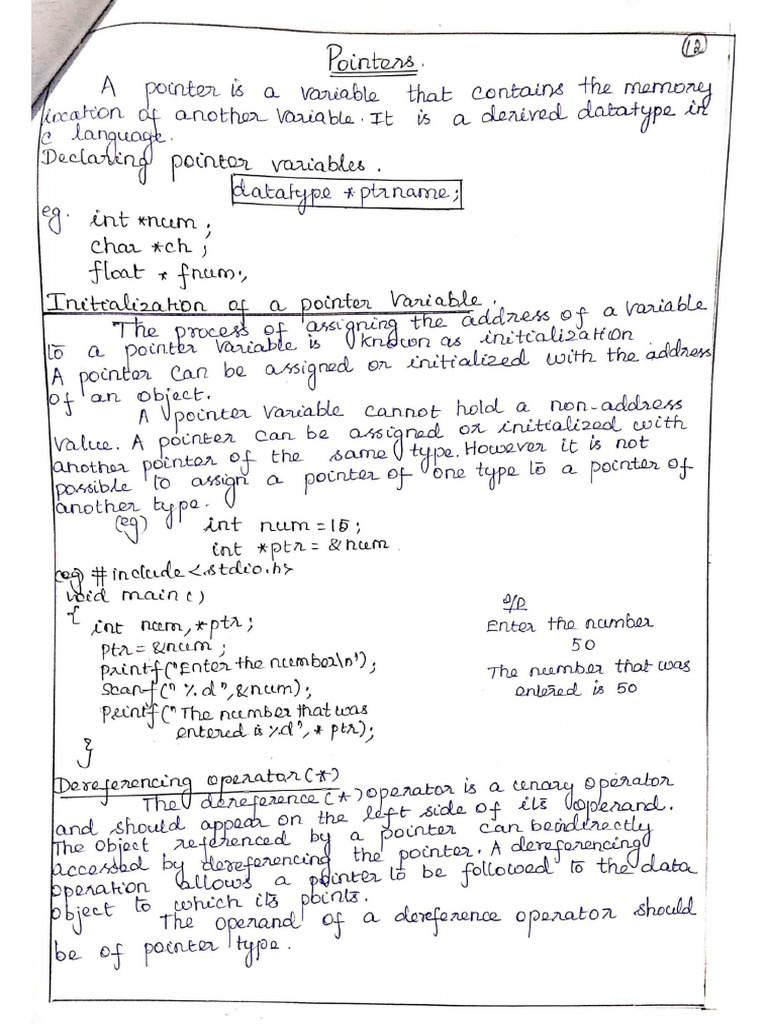 12
Pointers.
A pointer is a variable that contains the memory
location of another variable. It is a derived datatype in
C language.
Declaring pointer variables.
datatype *ptrname;
eg. int *num;
char *ch;
float * fnum;
Initialization of a pointer variable.
The process of assigning the address of a variable
to a pointer variable is known as initialization.
A pointer can be assigned or initialized with the address
of an object.
A pointer variable cannot hold a non-address
value. A pointer can be assigned or initialized with
another pointer of the same type. However it is not
possible to assign a pointer of one type to a pointer of
another type.
(eg) int num=15;
int *ptr=&num
(eg) #include<.stdio.h>
void main()
{
int num,*ptr;
ptr=&num;
printf("Enter the number\n");
Scanf("%d",&num);
printf("The number that was
entered is %d",*ptr);
}
o/p
Enter the number
50
The number that was
entered is 50
Dereferencing operator(*)
The dereference(*)operator is a unary operator
and should appear on the left side of its operand.
The object referenced by a pointer can be indirectly
accessed by dereferencing the pointer. A dereferencing
operation allows a pointer to be followed to the data
object to which its points.
The operand of a dereference operator should
be of pointer type.